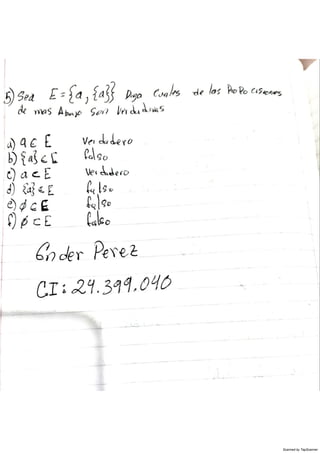 5) Sea E = {a, {a}} Diga Cuales de las Proposiciones
de mas Abajo Son Verdaderas
a) a ∈ E Verdadero
b) {a} ∈ E falso
c) a ⊂ E Verdadero
d) {a} ⊂ E falso
e) ∅ ∈ E falso
f) ∅ ⊂ E falso
Ender Perez
CI: 24.399.040
Scanned by TapScanner